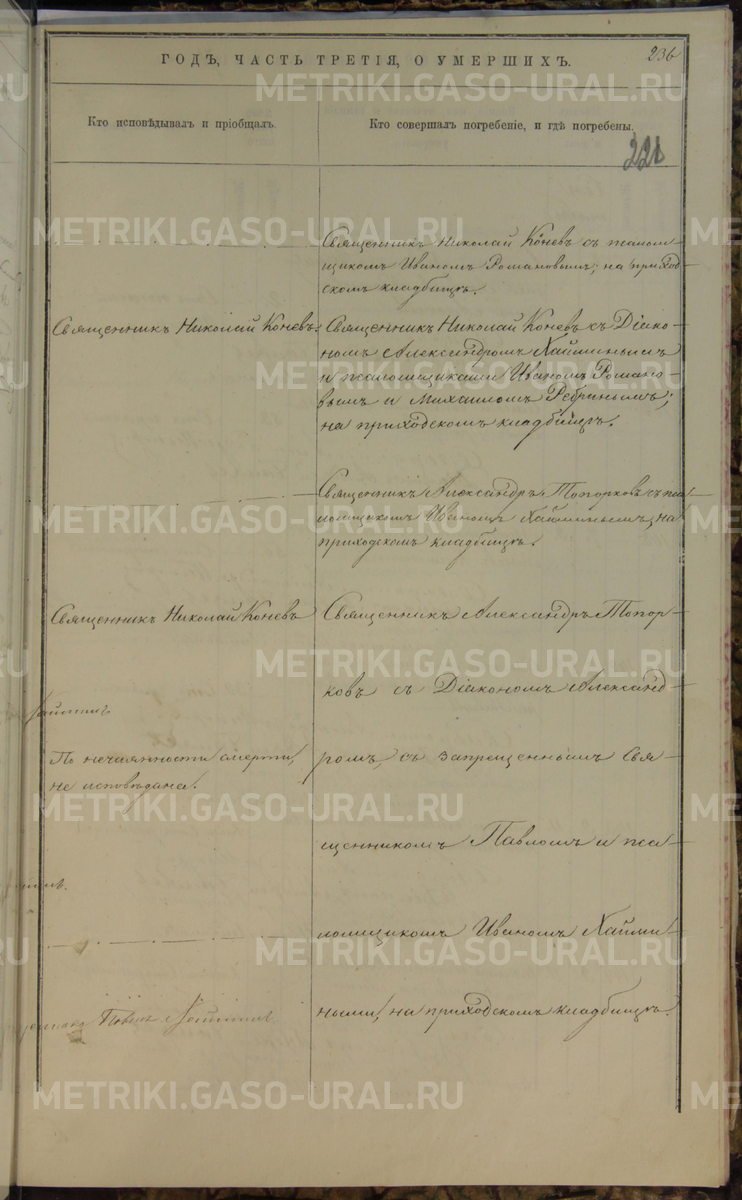 236
ГОДЪ, ЧАСТЬ ТРЕТІЯ, О УМЕРШИХЪ.
Кто исповѣдывалъ и пріобщалъ.
Кто совершалъ погребеніе, и гдѣ погребены.
221
Священникъ Николай Коневъ съ псалом-
щикомъ Иваномъ Романовымъ; на приход-
скомъ кладбищѣ.
Священникъ Николай Коневъ.
Священникъ Николай Коневъ съ Діако-
номъ Александромъ Хайминымъ
и псаломщиками Иваномъ Романо-
вымъ и Михаиломъ Ребринымъ;
на приходскомъ кладбищѣ.
Священникъ Александръ Топорковъ съ пса-
ломщикомъ Иваномъ Хайминымъ, на
приходскомъ кладбищѣ.
Священникъ Николай Коневъ
Священникъ Александръ Топор-
ковъ съ Діакономъ Александ-
ромъ, съ запрещеннымъ Свя-
щенникомъ Павломъ и пса-
ломщикомъ Иваномъ Хайми-
ными, на приходскомъ кладбищѣ.
По нечаянности смерти,
не исповѣдана.
METRIKI.GASO-URAL.RU
METRIKI.GASO-URAL.RU
METRIKI.GASO-URAL.RU
METRIKI.GASO-URAL.RU
METRIKI.GASO-URAL.RU
METRIKI.GASO-URAL.RU
METRIKI.GASO-URAL.RU
METRIKI.GASO-URAL.RU